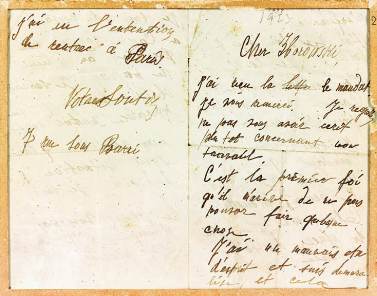 j'ai eu l'intention
de rentrer à Paris
Votre Soutine
7 rue Sous Barri
1923
2
Cher Zborowski,
J'ai reçu la lettre le mandat
je vous remercie. Je regrette
ne pas vous avoir ecrit
plu tot concernant mon
travail.
C'est la première foi
qu'il m'arrive de ne pas
pouvoir fair quelque
chose
J'ai un mauvais eta
d'esprit et suis demora
lisé, et cela